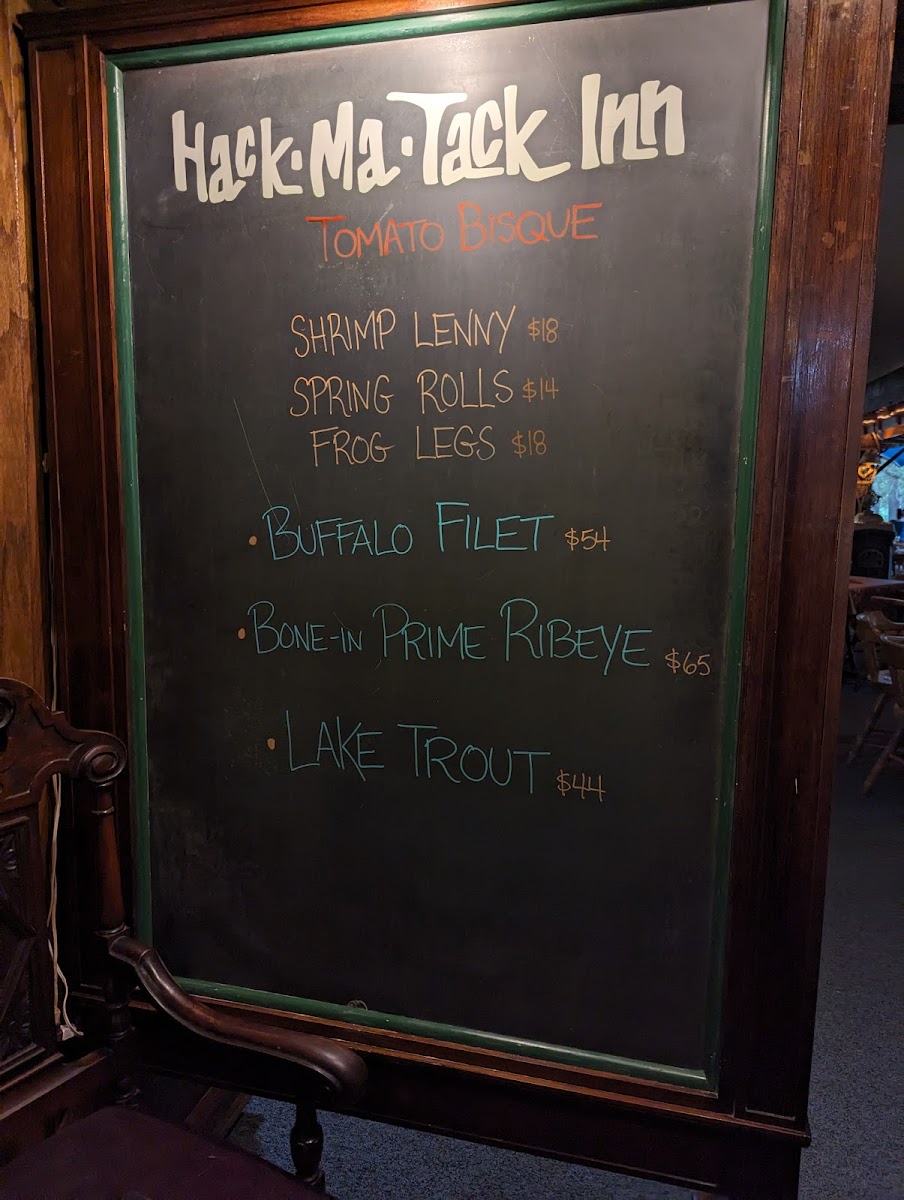 Hack·Ma·Tack Inn
TOMATO BISQUE
SHRIMP LENNY $18
SPRING ROLLS $14
FROG LEGS $18
• BUFFALO FILET $54
• BONE-IN PRIME RIBEYE $65
• LAKE TROUT $44